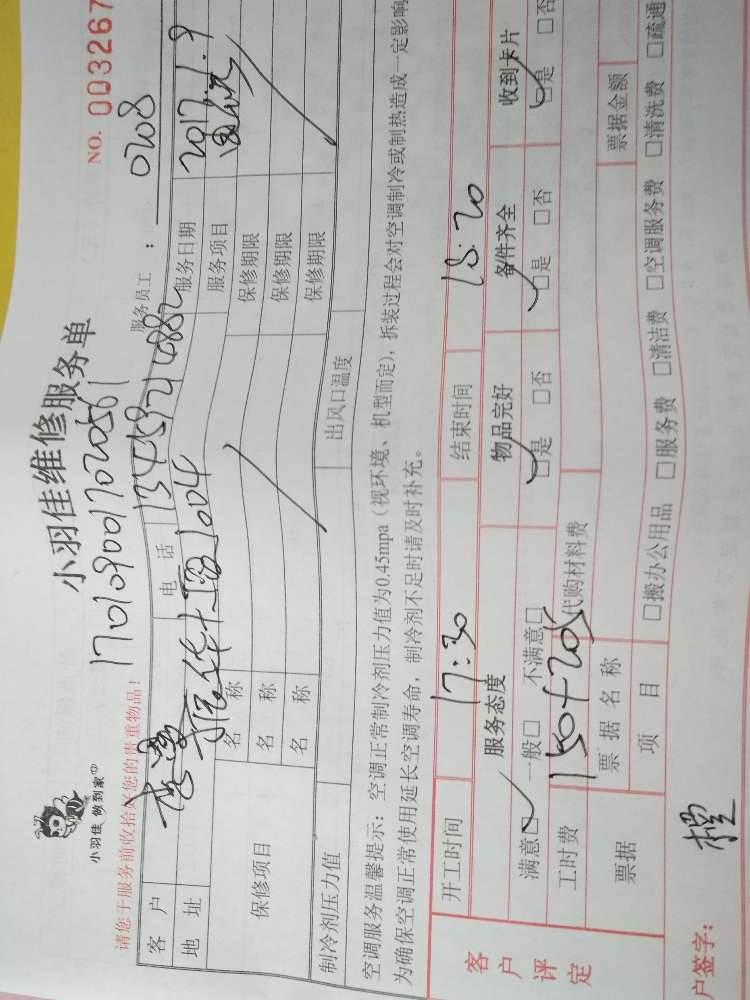 小羽佳 做到家
小羽佳维修服务单
NO. 003267
1701090017020561
请您于服务前收拾好您的贵重物品!
服务员工 : 0208
客 户 电 话 服务日期 2017.1.9
地 址 服务项目
保修项目
名 称 保修期限
名 称 保修期限
名 称 保修期限
制冷剂压力值 出风口温度
空调服务温馨提示: 空调正常制冷剂压力值为0.45mpa (视环境、机型而定), 拆装过程会对空调制冷或制热造成一定影响
为确保空调正常使用延长空调寿命, 制冷剂不足时请及时补充。
开工时间 17:30 结束时间 18:20
客户评定
服务态度 物品完好 备件齐全 收到卡片
满意□ 一般□ 不满意□ □是 □否 □是 □否 □是 □否
工时费 150+20 代购材料费
票据 票据名称 票据金额
项 目 □搬办公用品 □服务费 □清洁费 □空调服务费 □清洗费 □疏通
户签字: